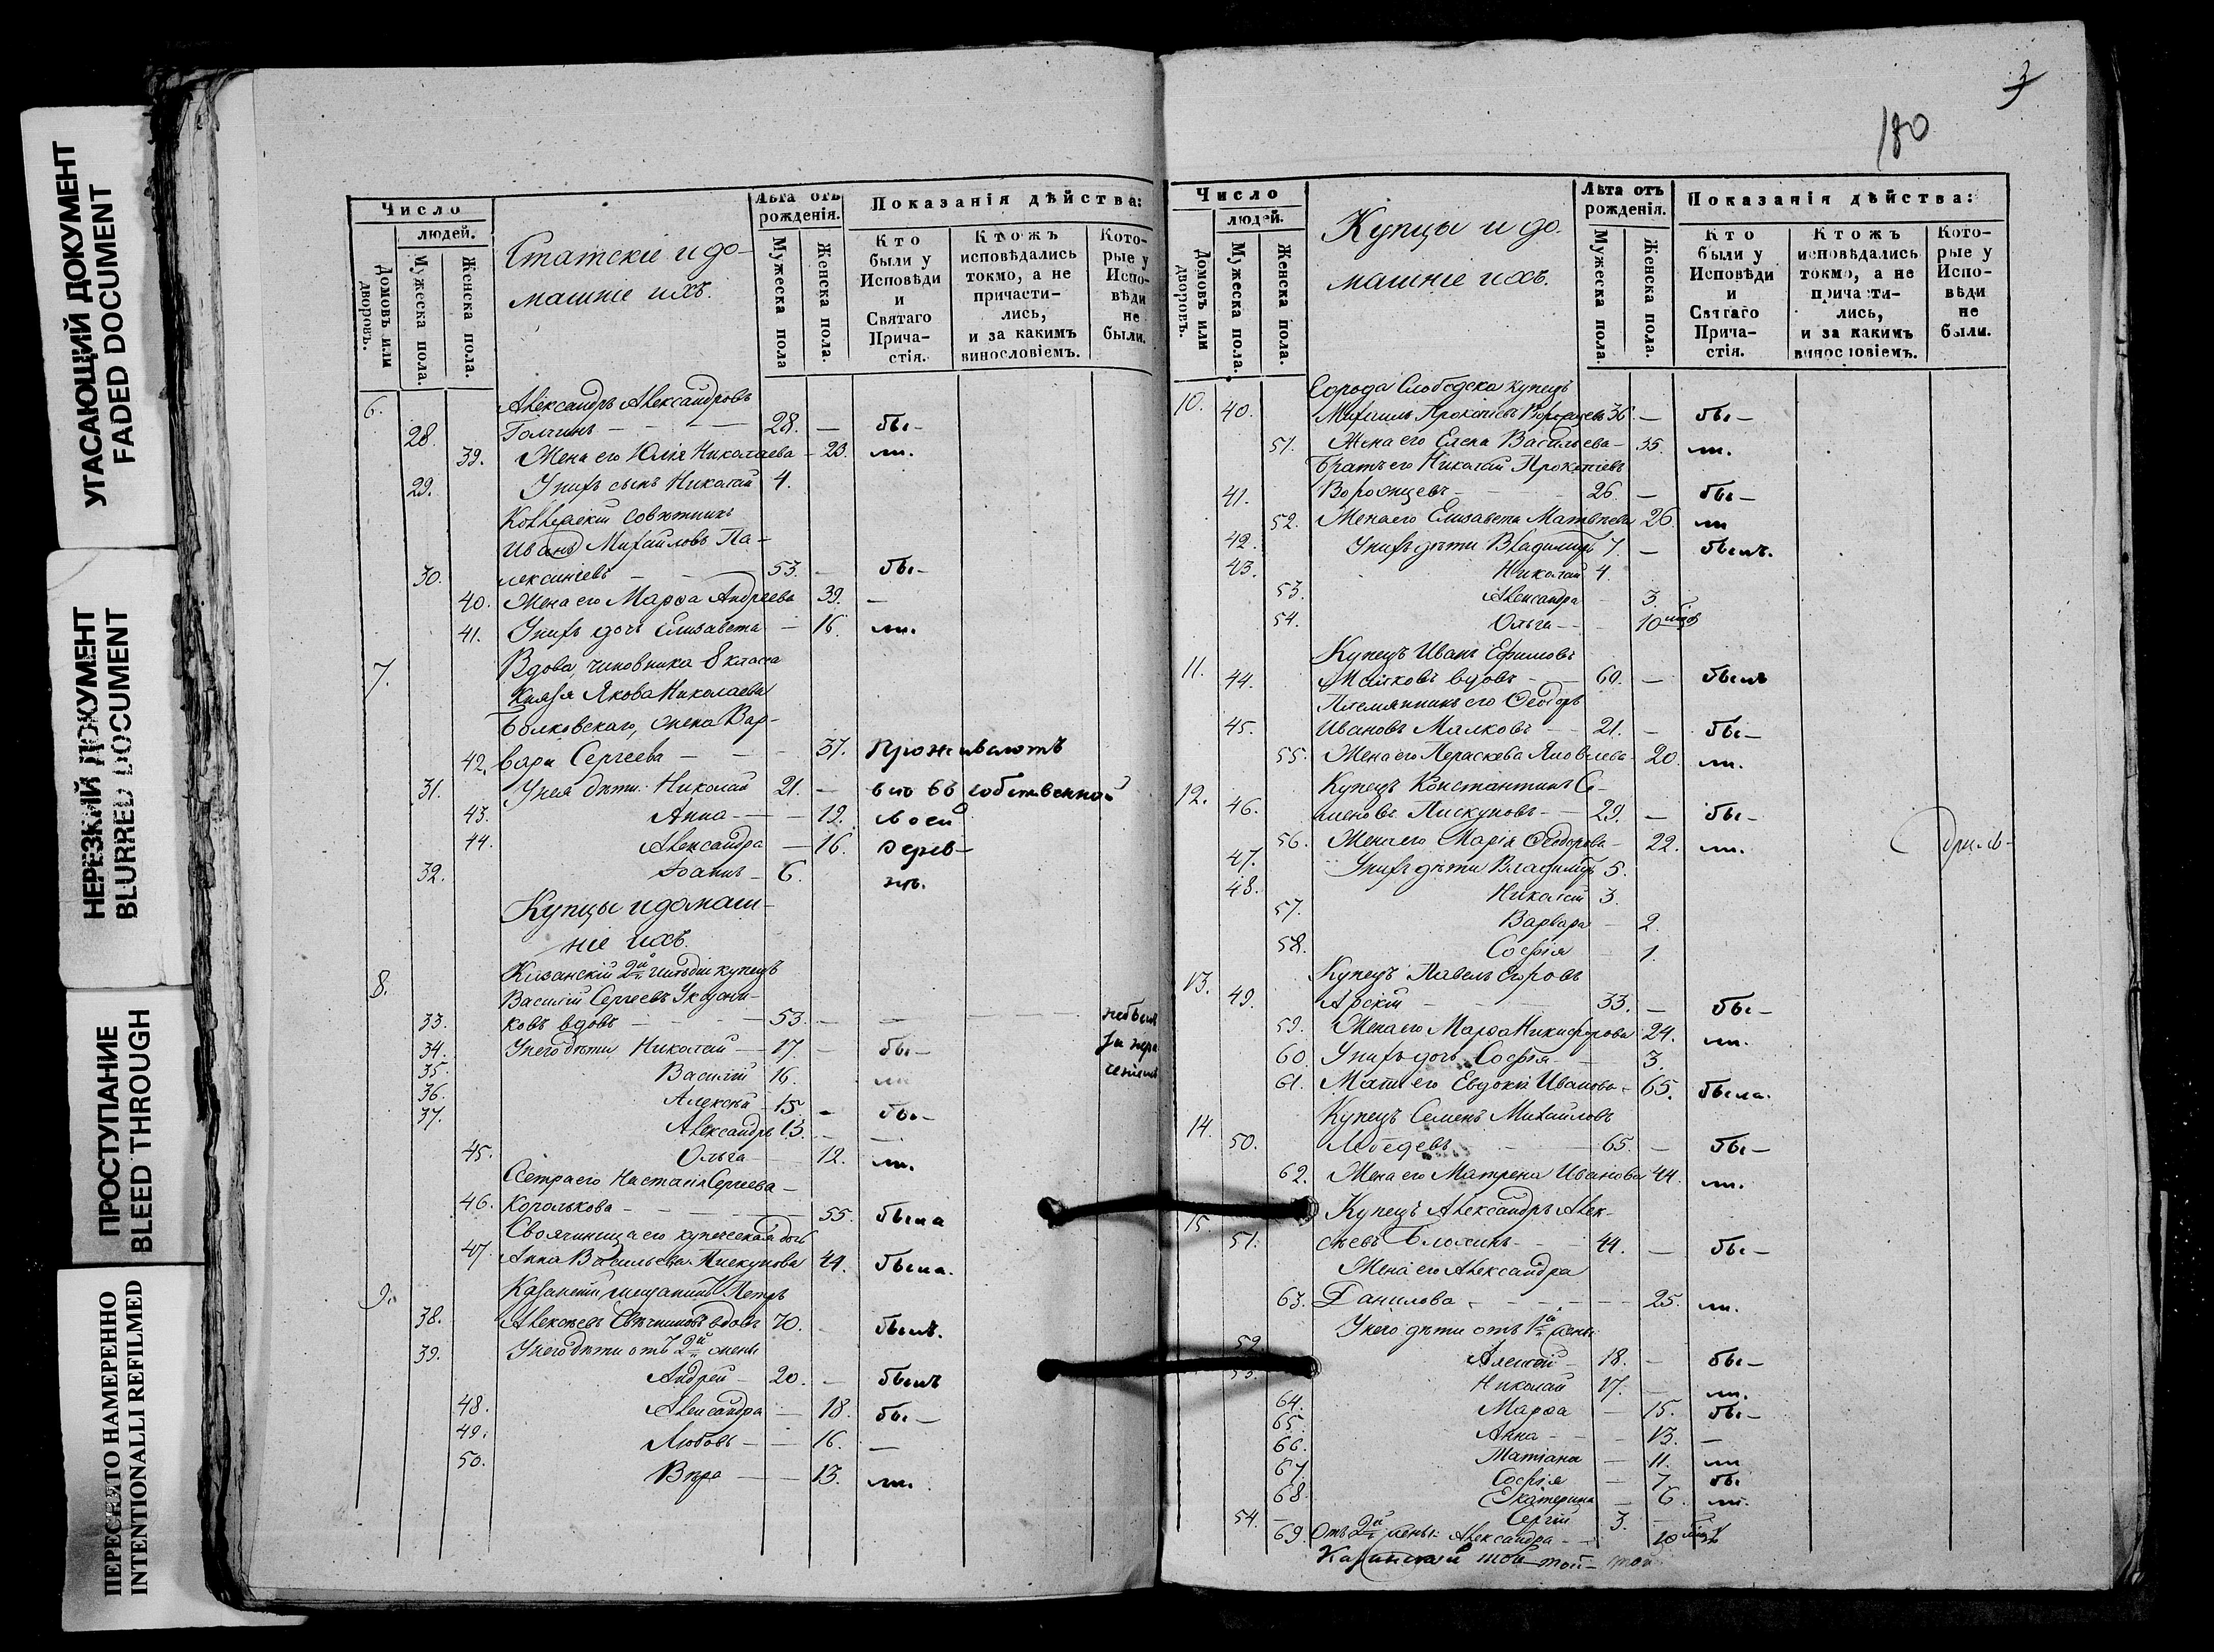 УГАСАЮЩИЙ ДОКУМЕНТ
FADED DOCUMENT
НЕРЕЗКИЙ ДОКУМЕНТ
BLURRED DOCUMENT
ПРОСТУПАНИЕ
BLEED THROUGH
ПЕРЕСНЯТО НАМЕРЕННО
INTENTIONALLI REFILMED
Число
людей.
Домовъ или дворовъ.
Мужеска пола.
Женска пола.
Статскіе и до-
машніе ихъ.
Лѣта отъ
рожденія.
Мужеска пола
Женска пола.
Показанія дѣйства:
Кто
были у
Исповѣди
и
Святаго
Прича-
стія.
Ктожъ
исповѣдались
токмо, а не
причасти-
лись,
и за какимъ
винословіемъ.
Кото-
рые у
Испо-
вѣди
не
были.
6. Александръ Александровъ
28. Галкинъ 28. — бы-
39. Жена его Юлія Николаева 23. ли.
29. У нихъ сынъ Николай 4.
Коллежскій совѣтникъ
Иванъ Михайловъ Па-
30. 53. — бы-
40. Жена его Марѳа Андреева 39. —
41. У нихъ дочь Елизавета — 16. ли.
7. Вдова, чиновника 8 класса
Князя Якова Николаева
Болховскаго, жена Вар-
42. вара Сергеева — 37. Проживаютъ
31. У нея дѣти: Николай 21. — въ собственной
43. Анна — 19. своей
44. Александра — 16. дерев-
32. Іоаннъ — 6. нѣ.
Купцы и домаш-
ніе ихъ.
8. Казанскій 2й гильдіи купецъ
Василій Сергеевъ
33. ковъ вдовъ — 53. — небылъ
34. У него дѣти, Николай — 17. — бы- за
35. Василій 16. ли
36. Алексѣй 15. — бы-
37. Александръ 13. —
45. Ольга — 12. ли.
Сестра его Настасія Сергеева —
46. Королькова — 55. была
Своячиница его купеческая дочь
47. Анна Васильева Пискунова 44. была.
9. Казанскій мещанинъ Петръ
38. Алексѣевъ вдовъ 70. — былъ.
39. У него дѣти отъ 2й жены
Андрей — 20. — былъ
48. Александра — 18. бы-
49. Любовь — 16. —
50. Вѣра — 13. ли.
3
180
Число
людей.
Домовъ или дворовъ.
Мужеска пола.
Женска пола.
Купцы и до-
машніе ихъ.
Лѣта отъ
рожденія.
Мужеска пола.
Женска пола.
Показанія дѣйства:
Кто
были у
Исповѣди
и
Святаго
Прича-
стія.
Ктожъ
исповѣдались
токмо, а не
причасти-
лись,
и за какимъ
винословіемъ.
Кото-
рые у
Испо-
вѣди
не
были.
Города Слободска купецъ
10. 40. Михаилъ Прокопіевъ Воронцевъ 36. — бы-
51. Жена его Елена Васильева — 35. ли.
Братъ его Николай Прокопіевъ
41. Воронцевъ — 26. — бы-
52. Жена его Елизавета Матвѣева 26. ли
42. У нихъ дѣти Владимиръ 7. — былъ.
43. Николай 4.
53. Александра — 3.
54. Ольга — 10 мѣс
Купецъ Иванъ Ефимовъ
11. 44. Малковъ вдовъ — 60. — былъ
Племянникъ его Ѳеодоръ
45. Ивановъ Малковъ — 21. — бы-
55. Жена его Параскева Яковлева 20. ли.
12. Купецъ Константинъ Се-
46. меновъ Пискуновъ — 29. — бы-
56. Жена его Марія Ѳеодорова — 22. ли.
47. У нихъ дѣти Владимиръ 5.
48. Николай 3.
57. Варвара — 2.
58. Софія — 1.
13. Купецъ Павелъ Егоровъ
49. Арскій — 33. — бы-
59. Жена его Марѳа Никифорова 24. ли.
60. У нихъ дочь Софія — 3.
61. Мать его Евдокія Иванова — 65. была.
Купецъ Семенъ Михайловъ
14. 50. Лебедевъ — 65. — бы-
62. Жена его Матрена Иванова 44. ли.
15. Купецъ Александръ Алек-
51. сѣевъ Блохинъ — 44. — бы-
Жена его Александра
63. Данилова — 25. ли.
У него дѣти отъ 1й жены
52. Алексѣй — 18. — бы-
53. Николай 17. — ли.
64. Марѳа — 15. бы-
65. Анна — 13. —
66. Татіана — 11. ли
67. Софія — 7. бы
68. Екатерина — 6. ли.
54. Сергій 3. —
69. Отъ 2й жены: Александра — 10 мѣс